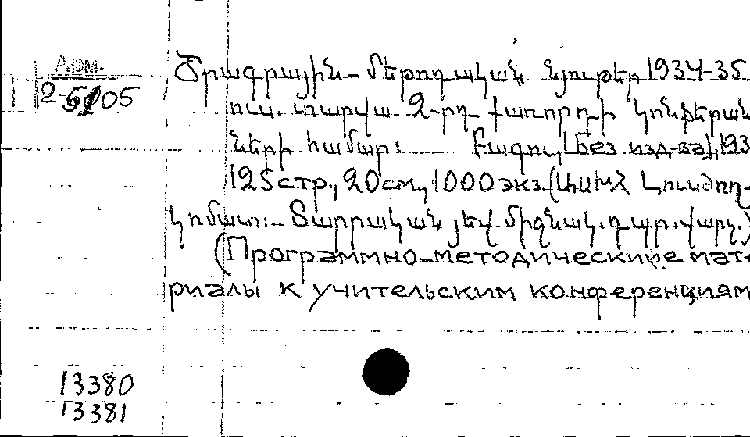 Арм.
2-5105
Ծրագրային-մեթոդական նյութեր 1934-35
ուս. տարվա 2-րդ քառորդի կոնֆերան
ների համար: Բագու, [без изд-ва], 193
125 стр., 20 см., 1000 экз. (ԱԱԽՀ Լուսժող-
կոմատ: Տարրական յեվ միջնակ. դպր. վարչ.)
(Программно-методические мате
риалы к учительским конференциям
13380
13381